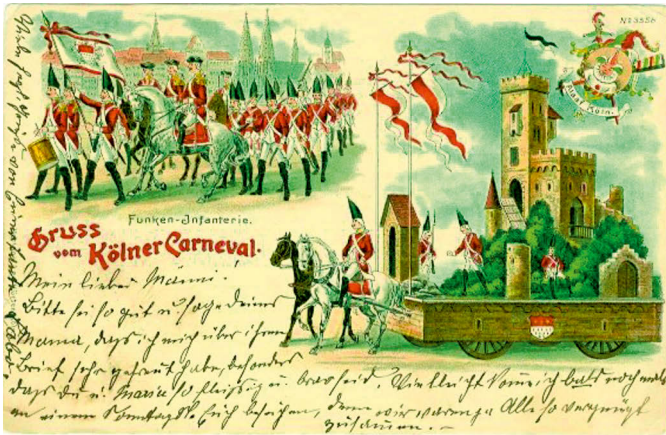 No 3556
Alaaf Köln.
Funken-Infanterie.
Gruss
vom Kölner Carneval.
Mein lieber Männi!
Bitte sei so gut u. sage deine
Mama, dass ich mich über ihren
Brief sehr gefreut habe, besonders
dass du u. Maria so fleissig u. brav seid. Vielleicht komme ich bald noch mal
an einem Sonntag Euch besuchen, denn wir waren ja Alle so vergnügt
zusammen. –